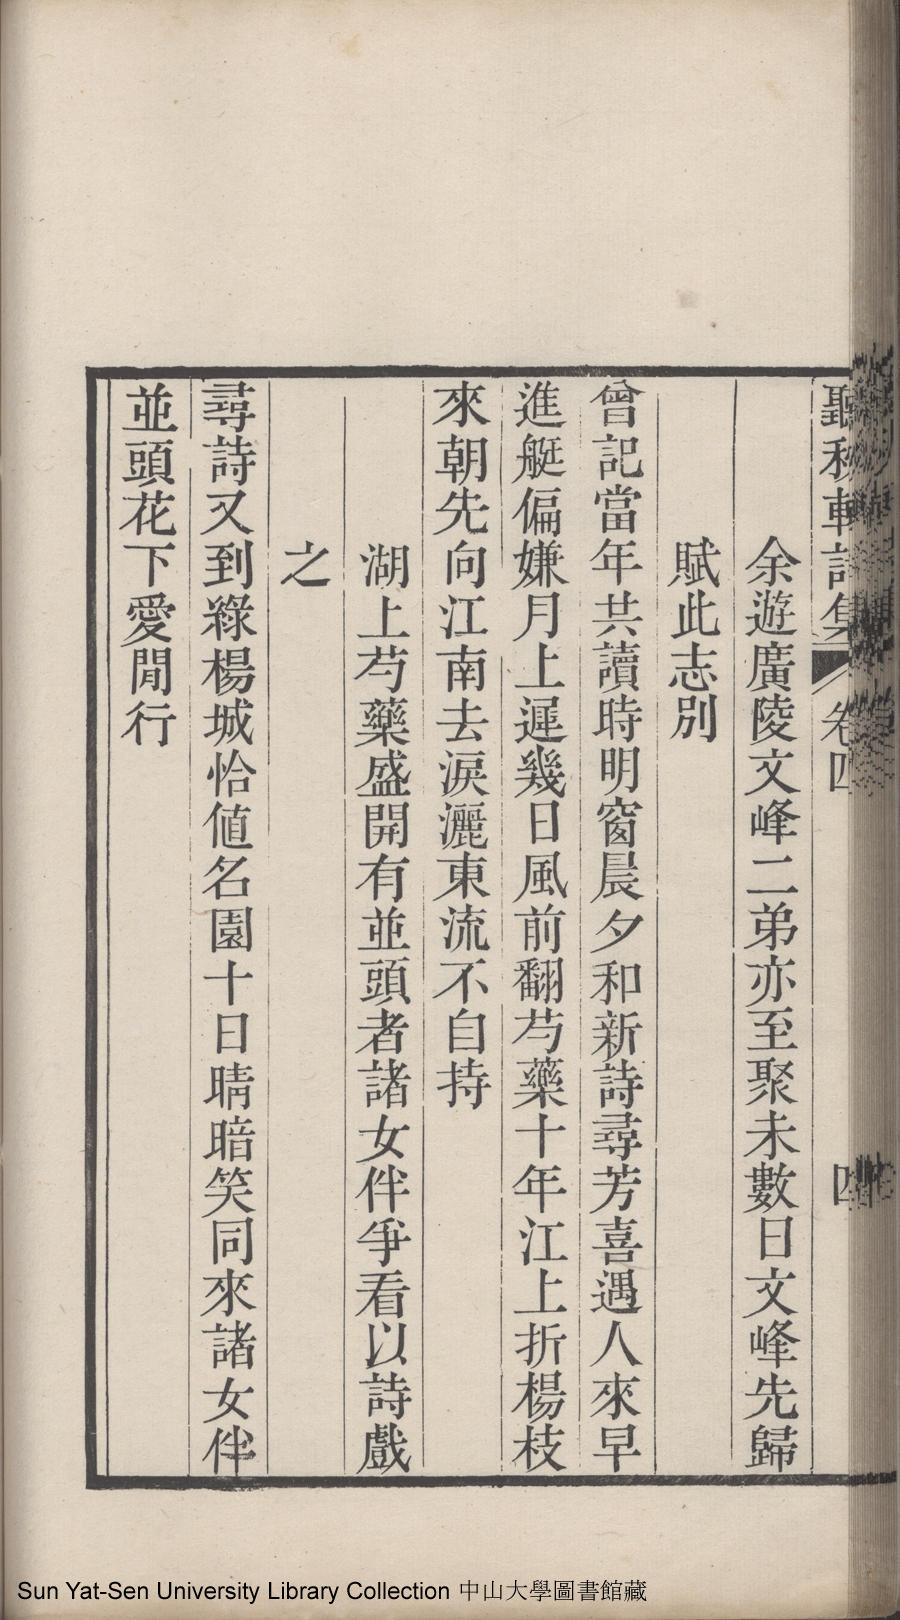 聽秋軒詩集 卷四 四
余遊廣陵文峰二弟亦至聚未數日文峰先歸
賦此志別
曾記當年共讀時明窗晨夕和新詩尋芳喜遇人來早
進艇偏嫌月上遲幾日風前翻芍藥十年江上折楊枝
來朝先向江南去淚灑東流不自持
湖上芍藥盛開有並頭者諸女伴爭看以詩戲
之
尋詩又到綠楊城恰値名園十日晴暗笑同來諸女伴
並頭花下愛閒行
Sun Yat-Sen University Library Collection 中山大學圖書館藏